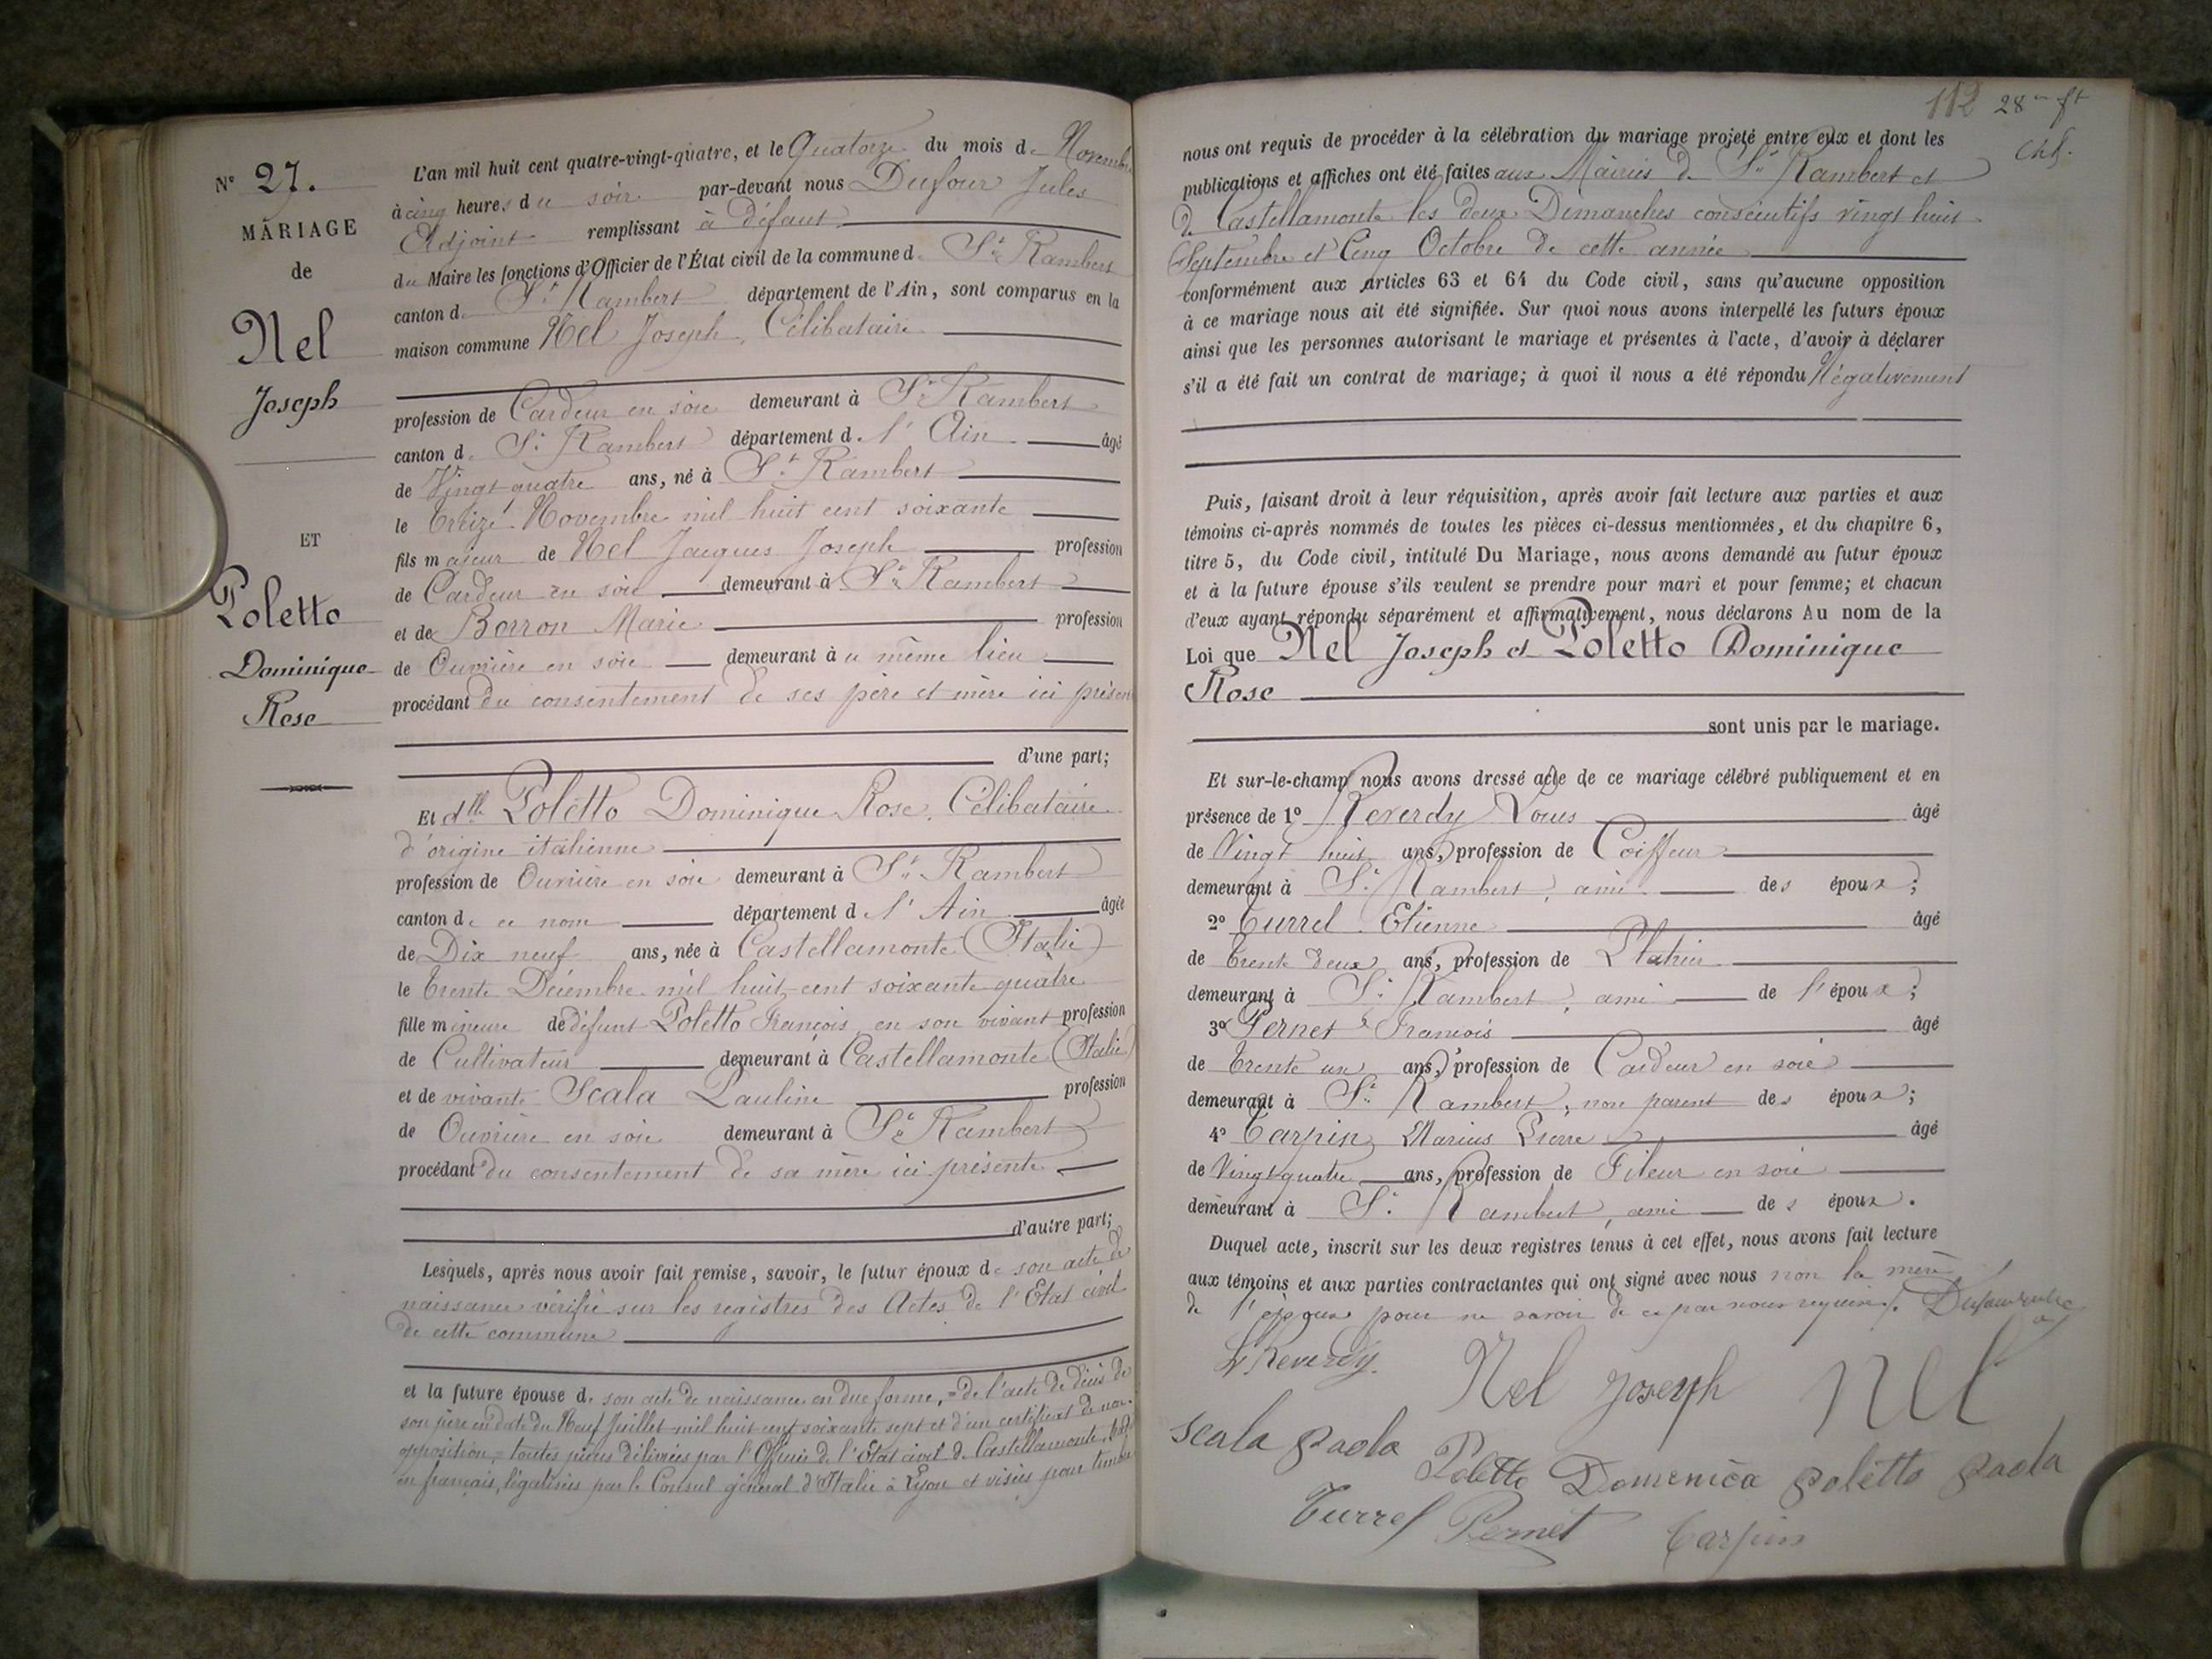 N° 27.
MARIAGE
de
Nel
Joseph
ET
Poletto
Dominique
Rose
L'an mil huit cent quatre-vingt-quatre, et le Quatorze du mois de Novembre
à cinq heures du soir par-devant nous Dufour Jules
Adjoint remplissant à défaut
du Maire les fonctions d'Officier de l'État civil de la commune de St Rambert
canton de St Rambert département de l'Ain, sont comparus en la
maison commune Nel Joseph, Célibataire
profession de Cardeur en soie demeurant à St Rambert
canton de St Rambert département de l'Ain âgé
de Vingt quatre ans, né à St Rambert
le treize Novembre mil huit cent soixante
fils majeur de Nel Jacques Joseph profession
de Cardeur en soie demeurant à St Rambert
et de Borron Marie profession
de Ouvrière en soie demeurant à u même lieu
procédant du consentement de ses père et mère ici présen
d'une part;
Et dlle Poletto Dominique Rose, Célibataire
d'origine italienne
profession de Ouvrière en soie demeurant à St Rambert
canton de ce nom département de l'Ain âgée
de Dix neuf ans, née à Castellamonte (Italie)
le trente Décembre mil huit cent soixante quatre
fille mineure de défunt Poletto François en son vivant profession
de Cultivateur demeurant à Castellamonte (Italie)
et de vivante Scala Pauline profession
de Ouvrière en soie demeurant à St Rambert
procédant du consentement de sa mère ici présente
d'autre part;
Lesquels, après nous avoir fait remise, savoir, le futur époux de son acte de
naissance vérifié sur les registres des Actes de l'Etat civil
de cette commune
et la future épouse de son acte de naissance en due forme, de l'acte de décès de
son père en date du Neuf Juillet mil huit cent soixante sept et d'un certificat de non-
opposition, toutes pièces délivrées par l'Officier de l'Etat civil de Castellamonte,
en français, légalisées par le Consul général d'Italie à Lyon et visées pour timbre
112 28 ft
nous ont requis de procéder à la célébration du mariage projeté entre eux et dont les
publications et affiches ont été faites aux Mairies de St Rambert et
de Castellamonte les deux Dimanches consécutifs vingt huit
Septembre et Cinq Octobre de cette année
conformément aux articles 63 et 64 du Code civil, sans qu'aucune opposition
à ce mariage nous ait été signifiée. Sur quoi nous avons interpellé les futurs époux
ainsi que les personnes autorisant le mariage et présentes à l'acte, d'avoir à déclarer
s'il a été fait un contrat de mariage; à quoi il nous a été répondu Négativement
Puis, faisant droit à leur réquisition, après avoir fait lecture aux parties et aux
témoins ci-après nommés de toutes les pièces ci-dessus mentionnées, et du chapitre 6,
titre 5, du Code civil, intitulé Du Mariage, nous avons demandé au futur époux
et à la future épouse s'ils veulent se prendre pour mari et pour femme; et chacun
d'eux ayant répondu séparément et affirmativement, nous déclarons Au nom de la
Loi que Nel Joseph et Poletto Dominique
Rose
sont unis par le mariage.
Et sur-le-champ nous avons dressé acte de ce mariage célébré publiquement et en
présence de 1° Reverdy Louis âgé
de Vingt huit ans, profession de Coiffeur
demeurant à St Rambert, ami des époux;
2° Turrel Etienne âgé
de trente deux ans, profession de Platrier
demeurant à St Rambert, ami de l'époux;
3° Pernet François âgé
de trente un ans, profession de Cardeur en soie
demeurant à St Rambert, non parent des époux;
4° Carpin Marius Pierre âgé
de Vingt-quatre ans, profession de Fileur en soie
demeurant à St Rambert, ami des époux.
Duquel acte, inscrit sur les deux registres tenus à cet effet, nous avons fait lecture
aux témoins et aux parties contractantes qui ont signé avec nous non la mère
de l'époux pour ne savoir de ce par nous requise.
L Reverdy Nel Joseph Nel
Scala Paola Poletto Domenica Poletto Paola
Turrel Pernet Carpin